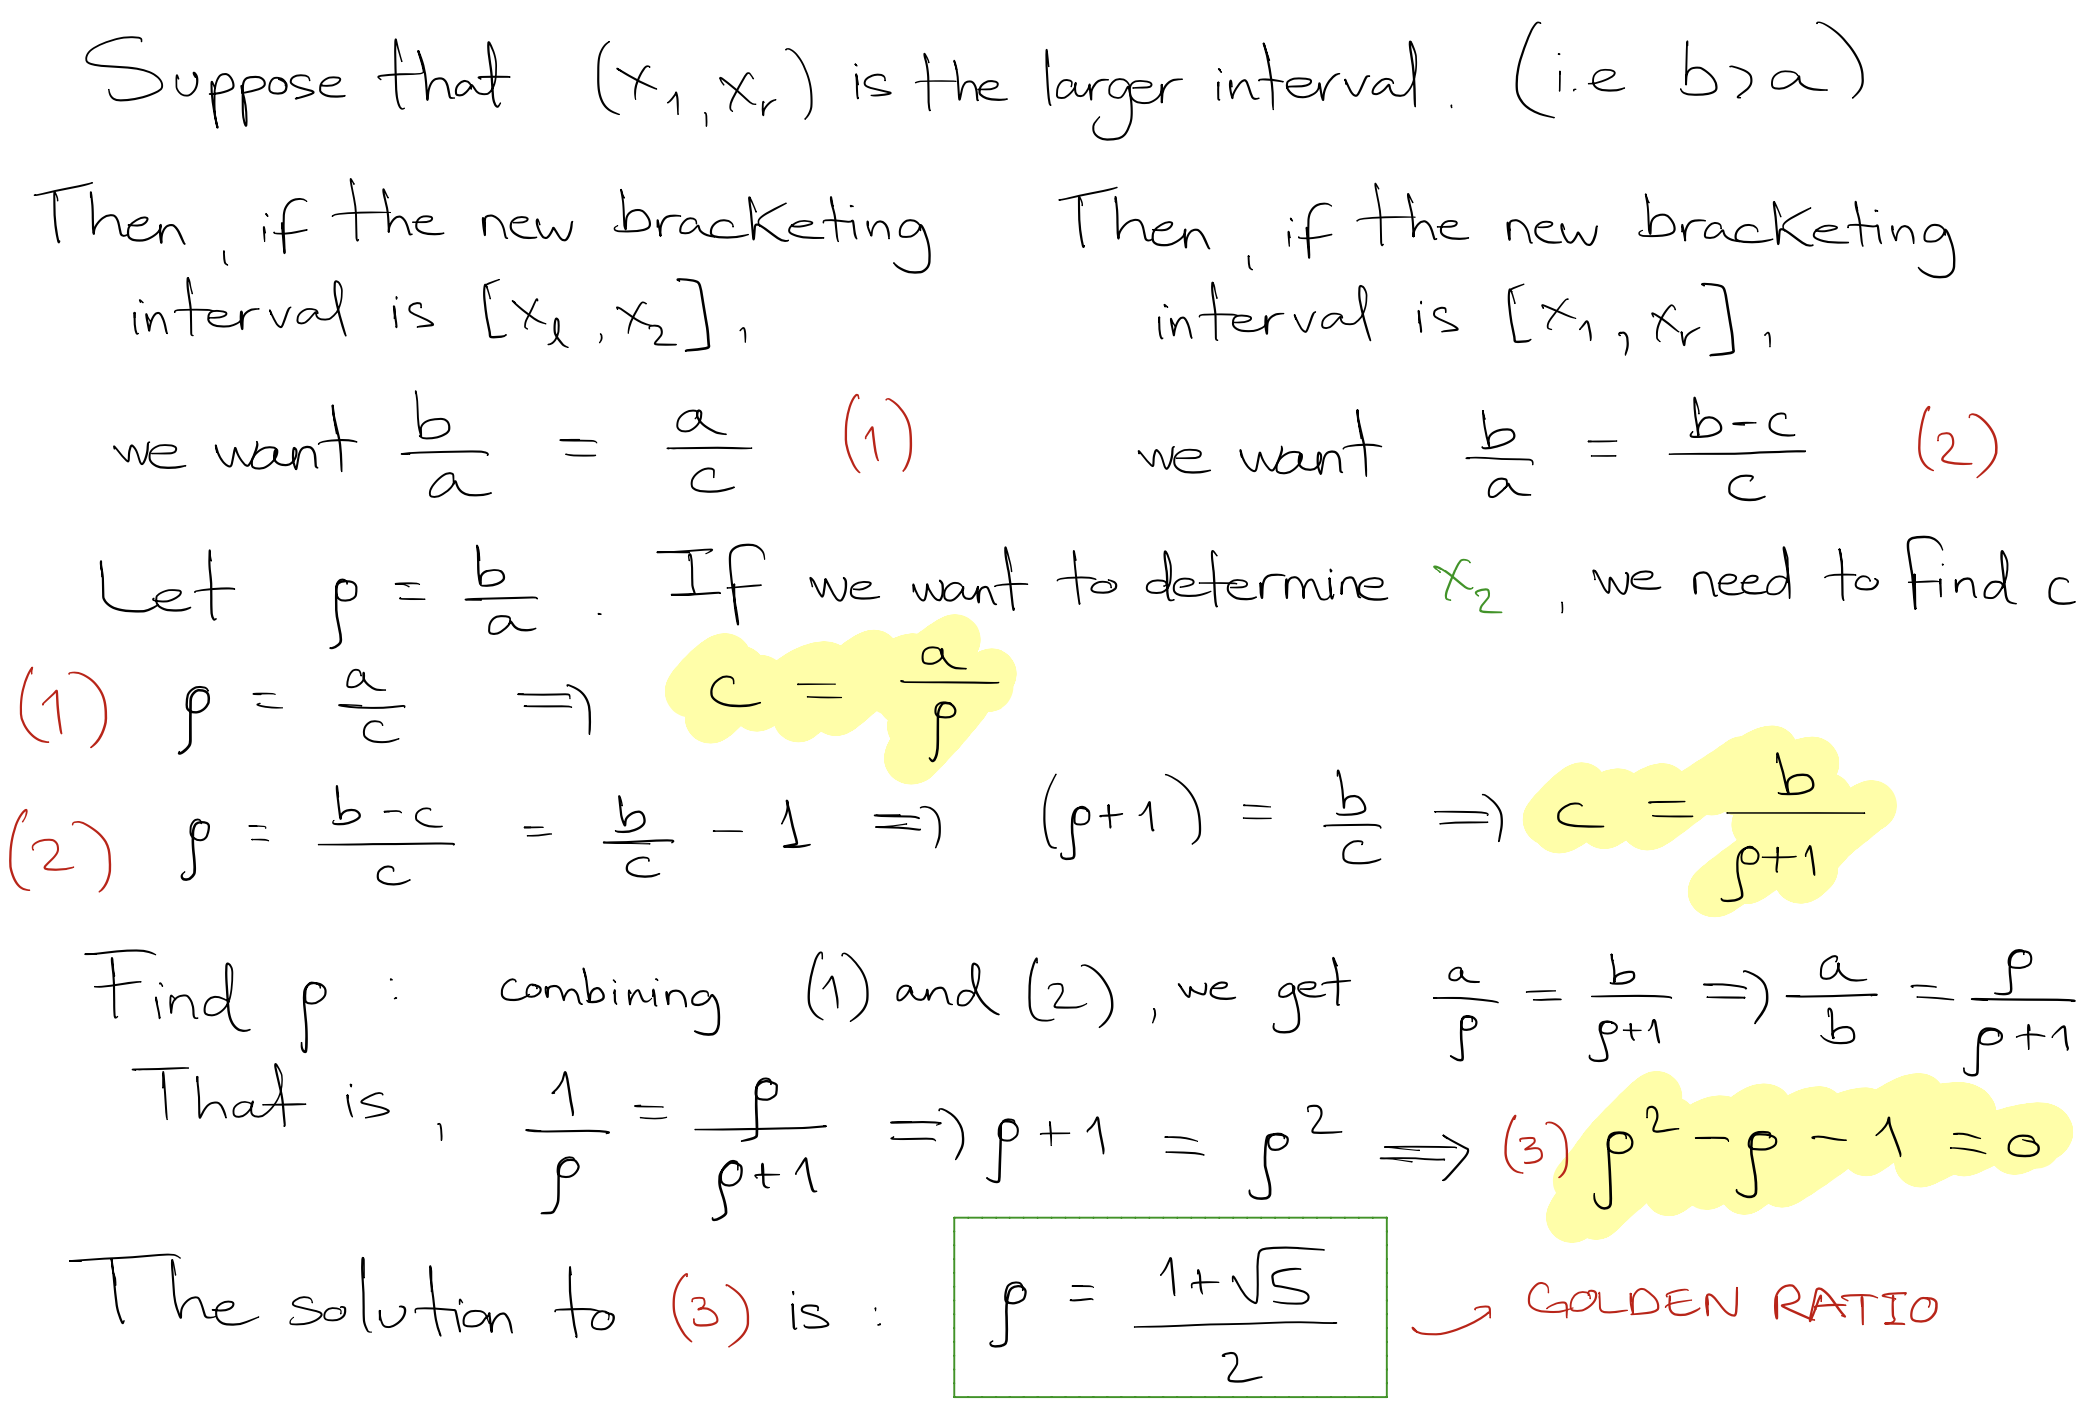 Suppose that (x₁, xᵣ) is the larger interval. (i.e b>a)
Then, if the new bracketing
interval is [xₗ, x₂],
we want b/a = a/c (1)
Then, if the new bracketing
interval is [x₁, xᵣ],
we want b/a = (b-c)/c (2)
Let ρ = b/a. If we want to determine x₂, we need to find c
(1) ρ = a/c ⇒ c = a/ρ
(2) ρ = (b-c)/c = b/c - 1 ⇒ (ρ+1) = b/c ⇒ c = b/(ρ+1)
Find ρ : combining (1) and (2), we get a/ρ = b/(ρ+1) ⇒ a/b = ρ/(ρ+1)
That is, 1/ρ = ρ/(ρ+1) ⇒ ρ+1 = ρ² ⇒ (3) ρ² - ρ - 1 = 0
The solution to (3) is : ρ = (1+√5)/2 → GOLDEN RATIO